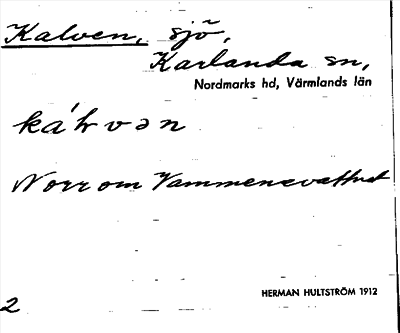 Kalven, sjö,
Karlanda sn,
Nordmarks hd, Värmlands län
Norr om Vammenevattnet
HERMAN HULTSTRÖM 1912
2